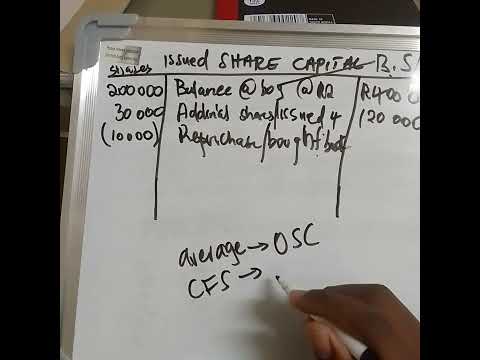 shares issued SHARE CAPITAL B.S
200000 Balance @ boy @ R2 R400 0
30 000 Additinal shares/issued 4 120 000
(10000) Repurchase/bought back
average → OSC
CFS →